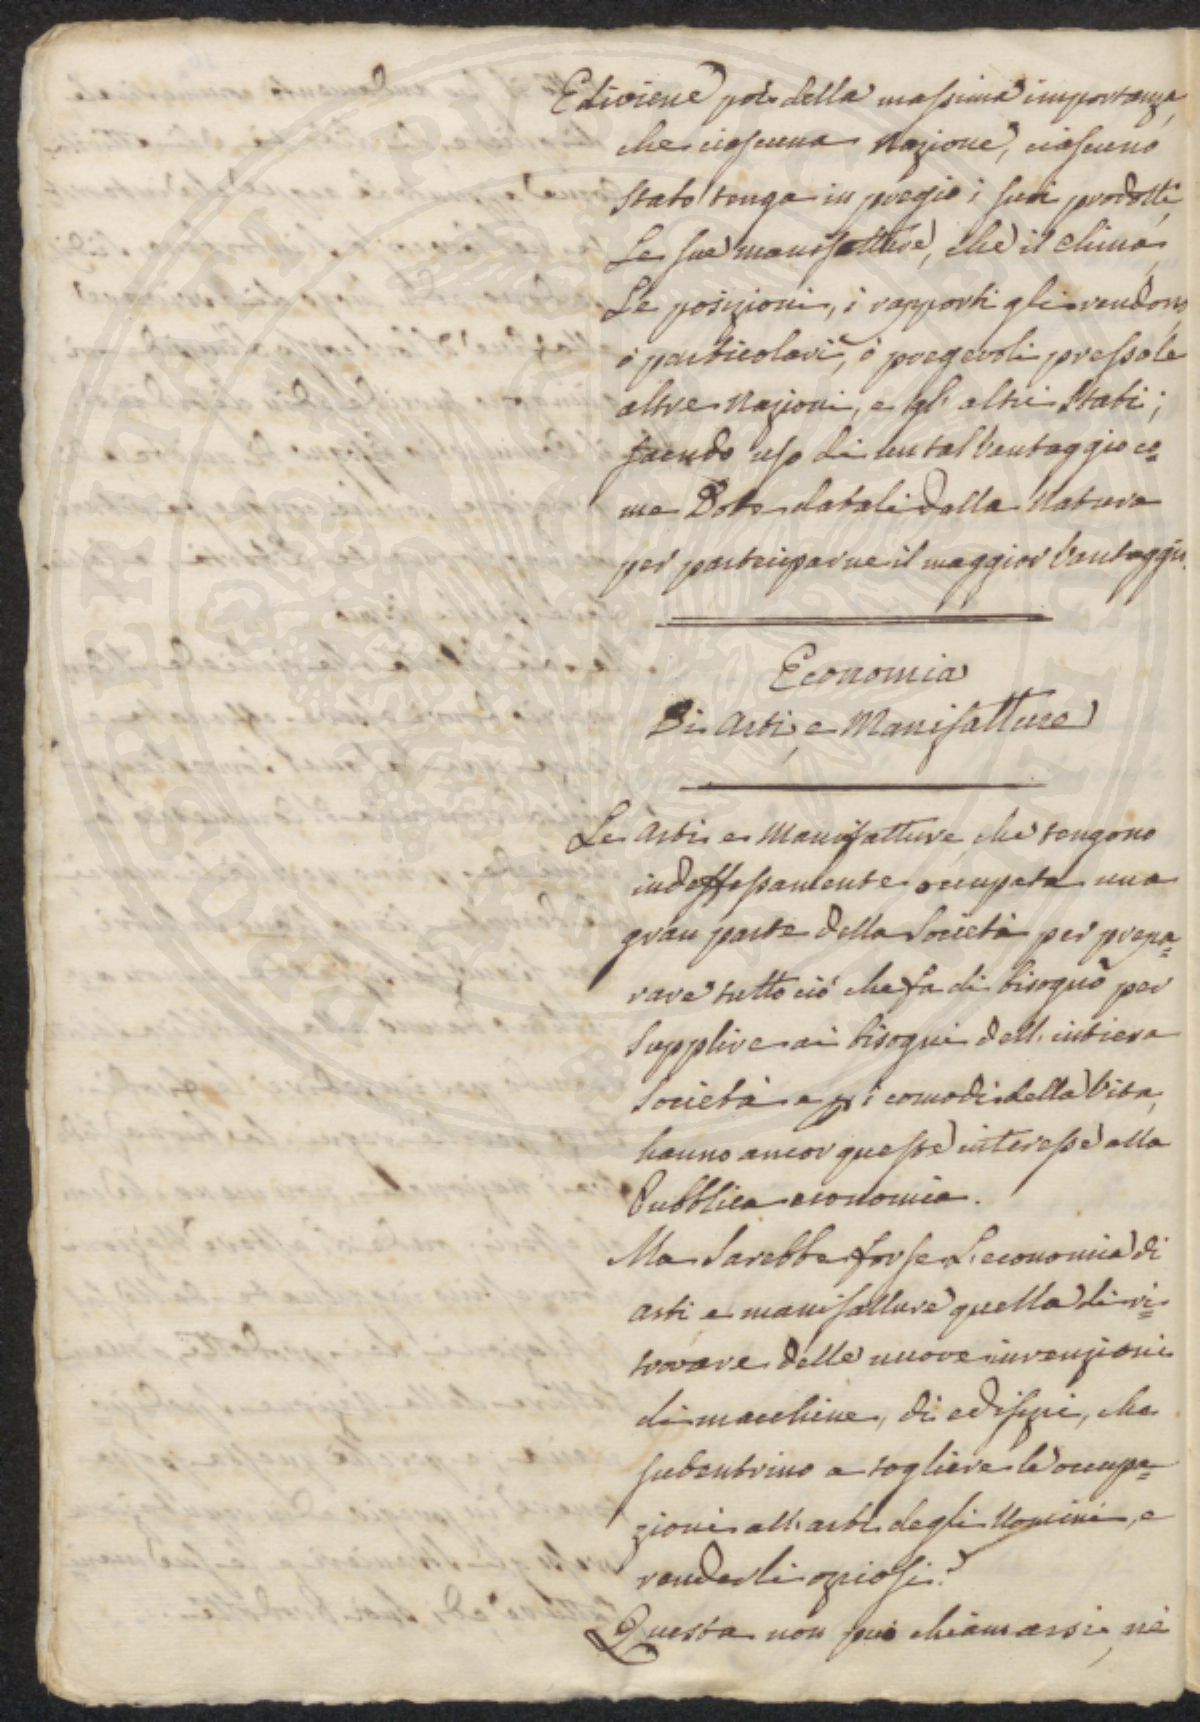 E diviene poi della massima importanza,
che ciascuna Nazione, ciascuno
Stato tenga in pregio i suoi prodotti,
Le sue manifatture, che il Clima,
Le posizioni, i rapporti gli rendono
ò particolari, ò pregevoli presso le
altre Nazioni, e gl'altri Stati;
facendo uso di un tal Vantaggio co=
me Dote datali dalla Natura
per parteciparne il maggior Vantaggio.
Economia
Di Arti, e Manifatture
Le Arti e Manifatture che tengono
indeffessamente occupata una
gran parte della Società per prepa=
rare tutto ciò che fa di bisogno per
Supplire ai bisogni dell'intiera
Società e p i comodi della Vita,
hanno ancor queste interesse alla
Pubblica economia.
Ma Sarebbe forse L'economia di
Arti e manifatture quella di ri=
trovare delle nuove invenzioni
di macchine, di edifizi, che
subentrino a togliere le occupa=
zioni all'arti degli Uomini, e
renderli oziosi?
Questa non può chiamarsi, nè